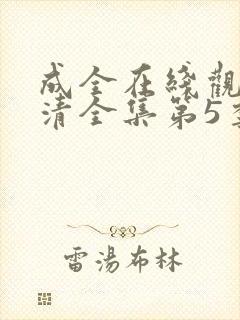 成全在綫觀
清全集第5季
雷湯布林